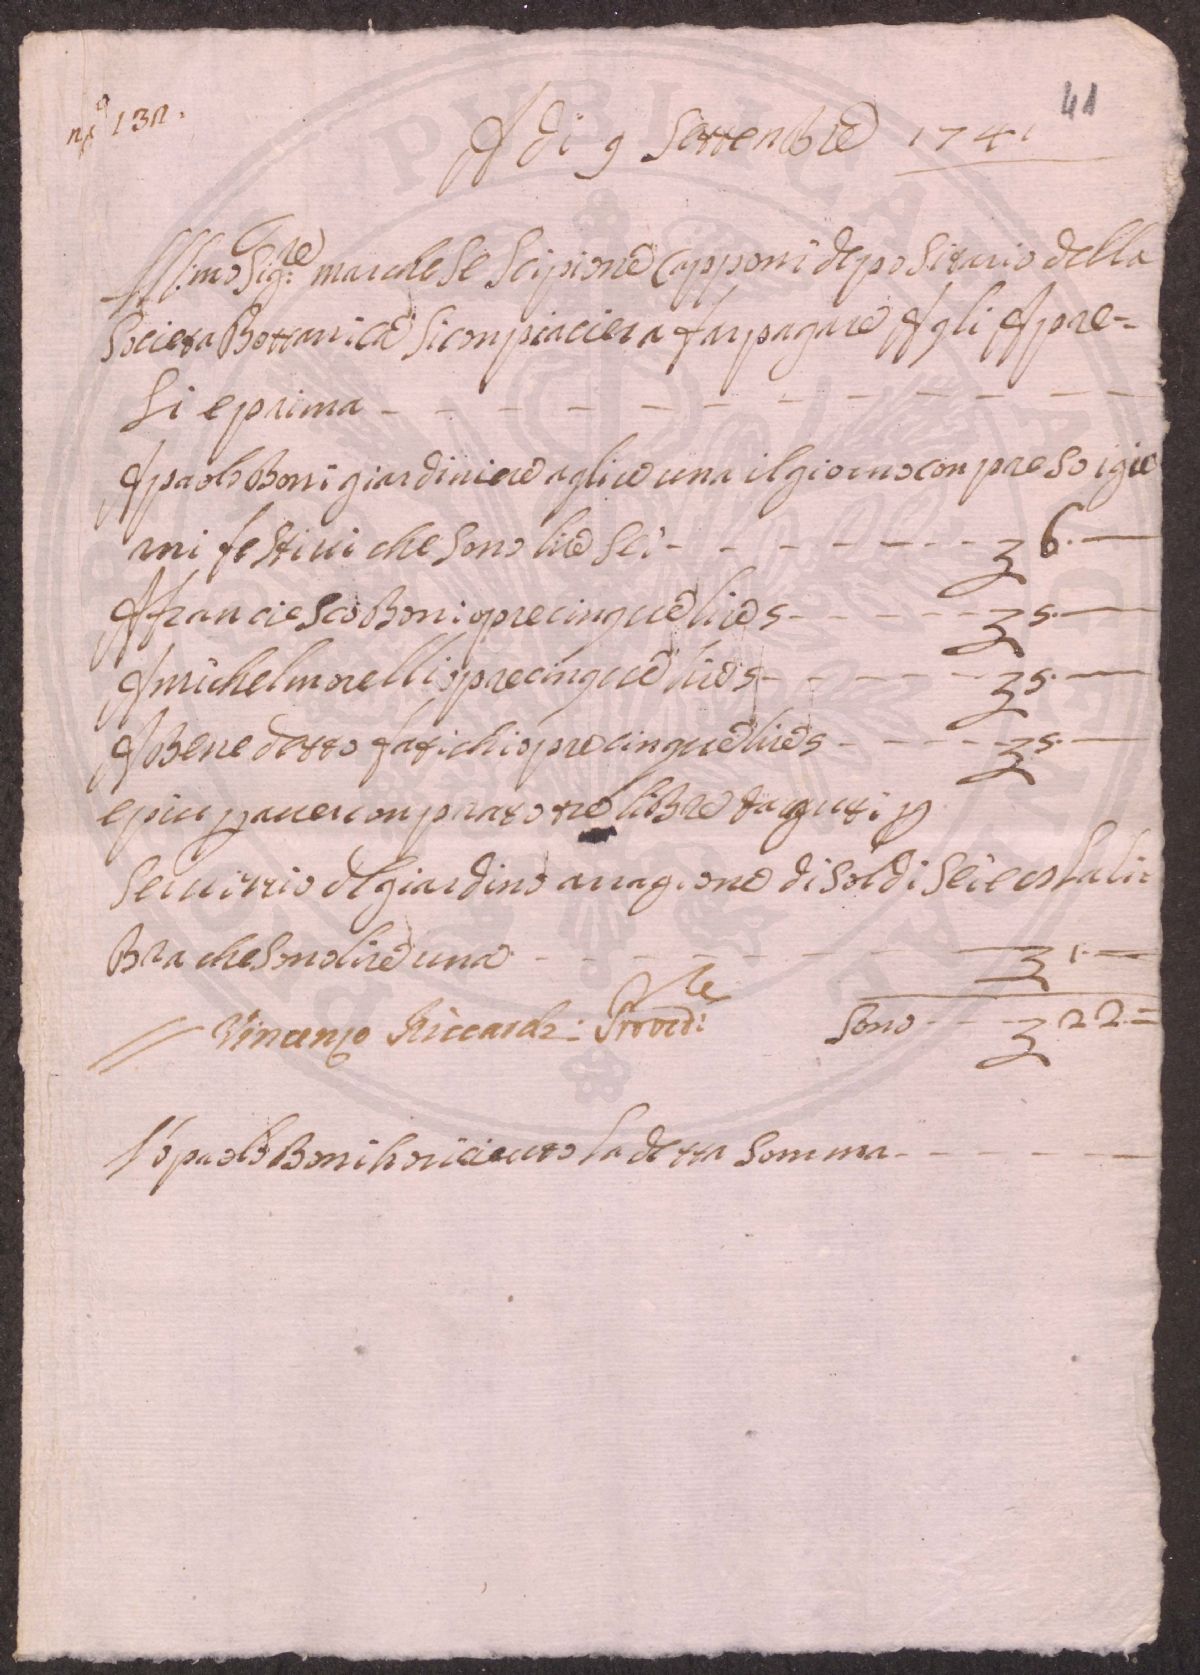 nº 132.
41
A di 9 Settenbre 1741
Ill:mo Sig:re marchese Scipione Capponi depositario della
Societa Bottanica si conpiaciera far pagare Agli Apre-
si e prima
A paolo Boni giardiniere a glire una il giorno conpreso i gio
rni festivi che sono lire sei 6.
A franciesco Boni opre cinque lire 5 5.
A michel morelli opre cinque lire 5 5.
A Benedetto fatichi opre cinque lire 5 5.
e piu p aver conprato tre libre d aguti p
servizzio del giardino a ragione di soldi sei e otto la li
Bra che sono lire una 1.
Vincenzo Riccardi: Proved:re Sono 22.
Io paolo Boni ho riceuto la detta somma